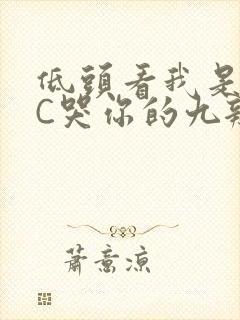 低頭看我是
C哭你的九
蕭意涼